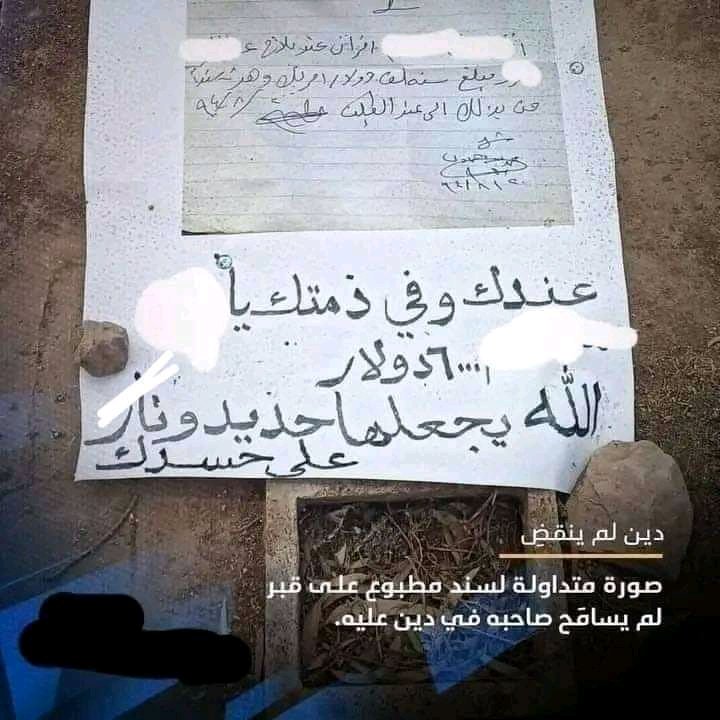 مبلغ سته الف دولار امريكي وهذا
بذلك الى عند الطلب
عندك وفي ذمتك يا
٦٠٠٠ دولار
الله يجعلها حديد ونار
على حسدك
دين لم ينقضِ
صورة متداولة لسند مطبوع على قبر
لم يسامَح صاحبه في دين عليه.